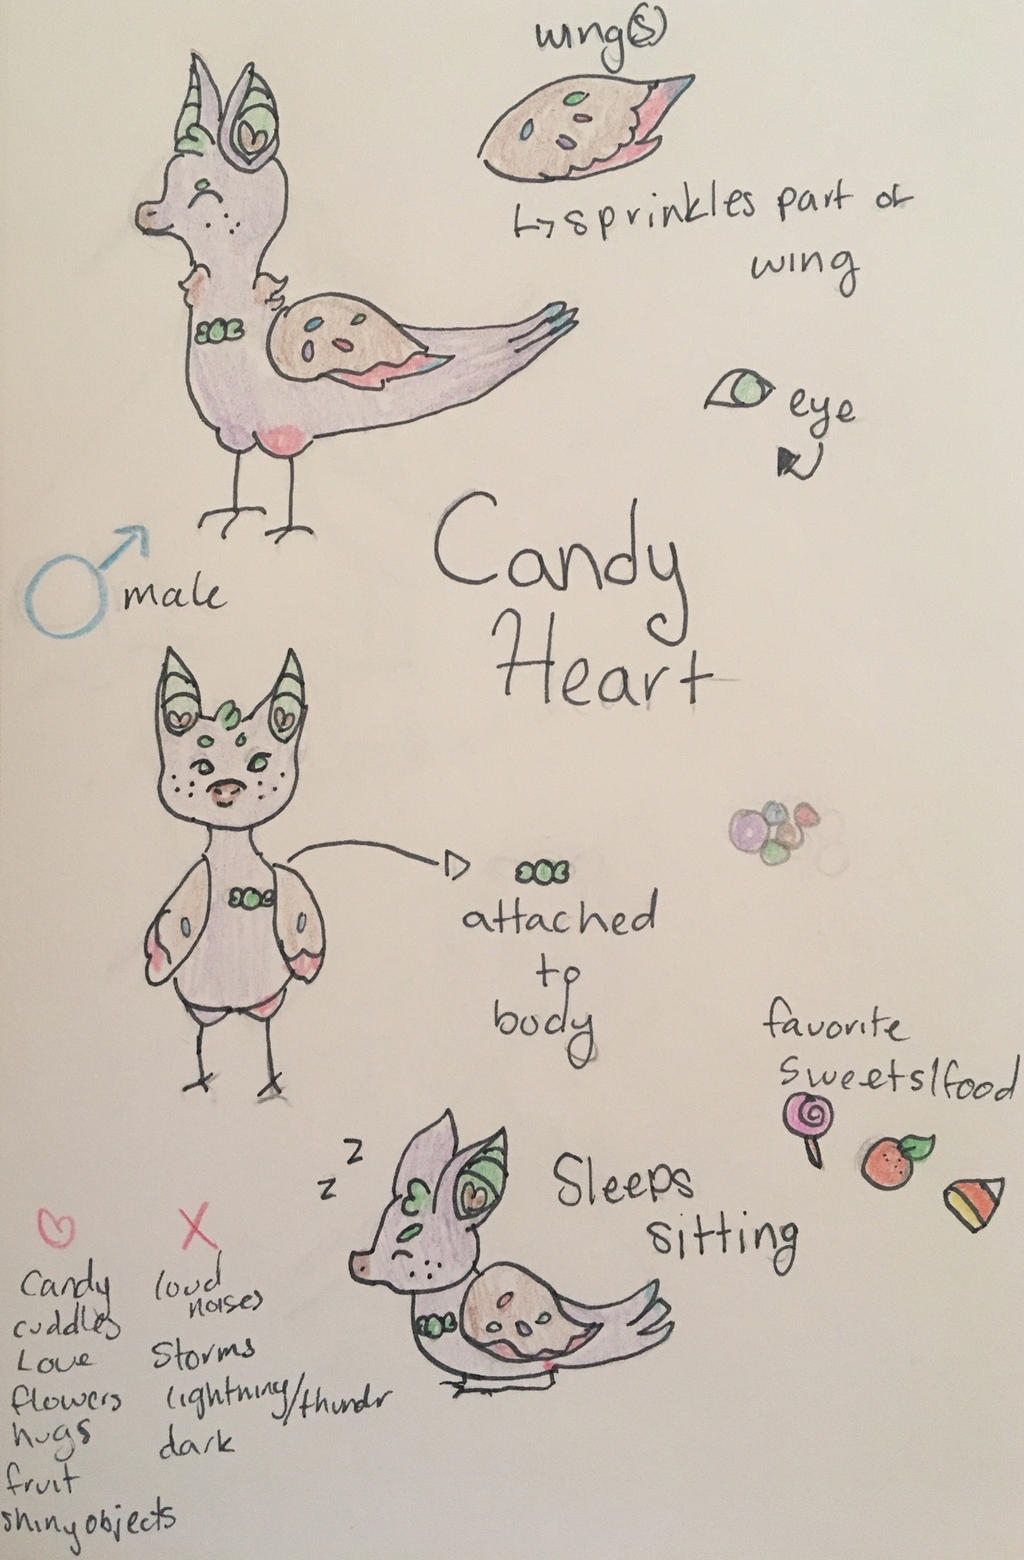 wing(s)
↳sprinkles part of
wing
eye
Candy
Heart
male
attached
to
body
favorite
sweets/food
z
z
Sleeps
sitting
X
Candy
cuddles
Love
flowers
hugs
fruit
shiny objects
loud
noises
Storms
lightning/thundr
dark